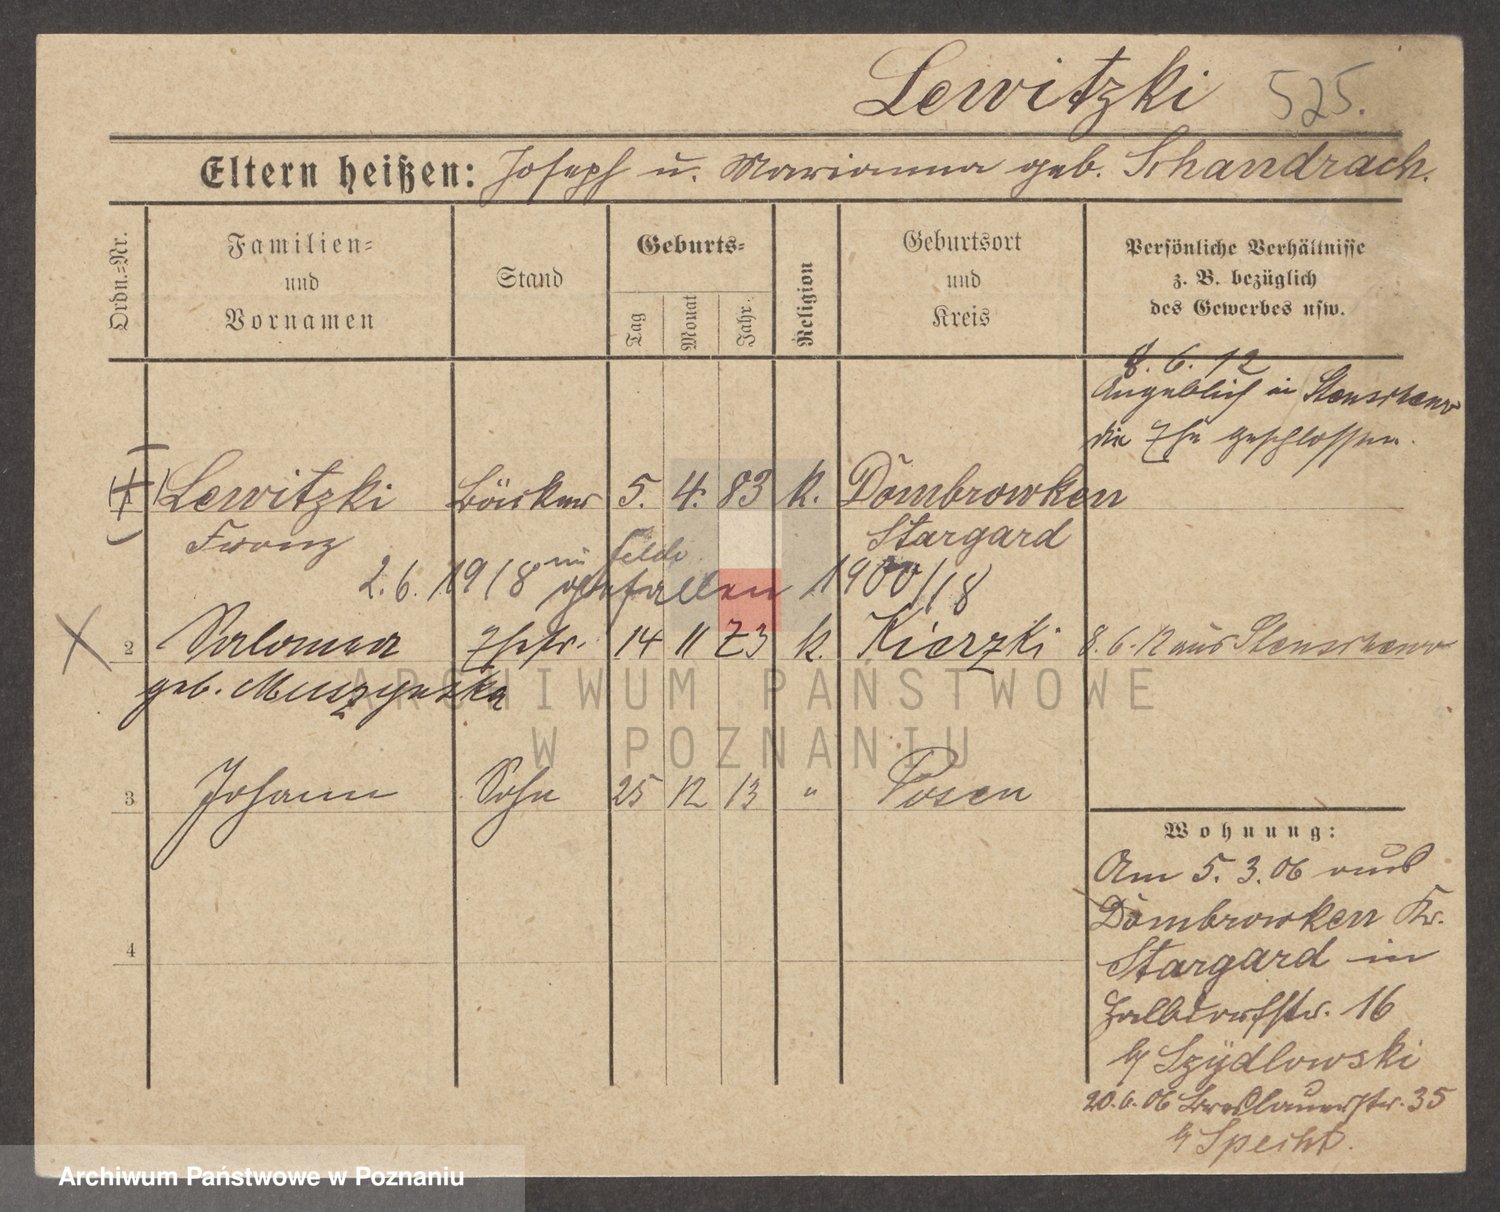 Lewitzki 525.
Eltern heißen: Joseph u. Marianna geb. Schandrach.
Ordn.=Nr.
Familien=
und
Vornamen
Stand
Geburts=
Tag
Monat
Jahr.
Religion
Geburtsort
und
Kreis
Persönliche Verhältnisse
z. B. bezüglich
des Gewerbes usw.
8. 6. 12
Angeblich in
die Ehe geschlossen.
Lewitzki Bäcker 5. 4. 83 k. Dombrowken
Franz Stargard
2.6.1918 im Felde
gefallen 1900/18
2 Salomea Ehefr. 14 11 73 k. Kierzki 8. 6. 12 aus
geb.
3 Johann Sohn 25 12 13 " Posen
4
Wohnung:
Am 5. 3. 06 aus
Dombrowken Kr.
Stargard in
Halbdorfstr. 16
b/ Szydlowski
20.6.06 Breslauerstr. 35
b/ Specht.
ARCHIWUM PAŃSTWOWE
W POZNANIU
Archiwum Państwowe w Poznaniu